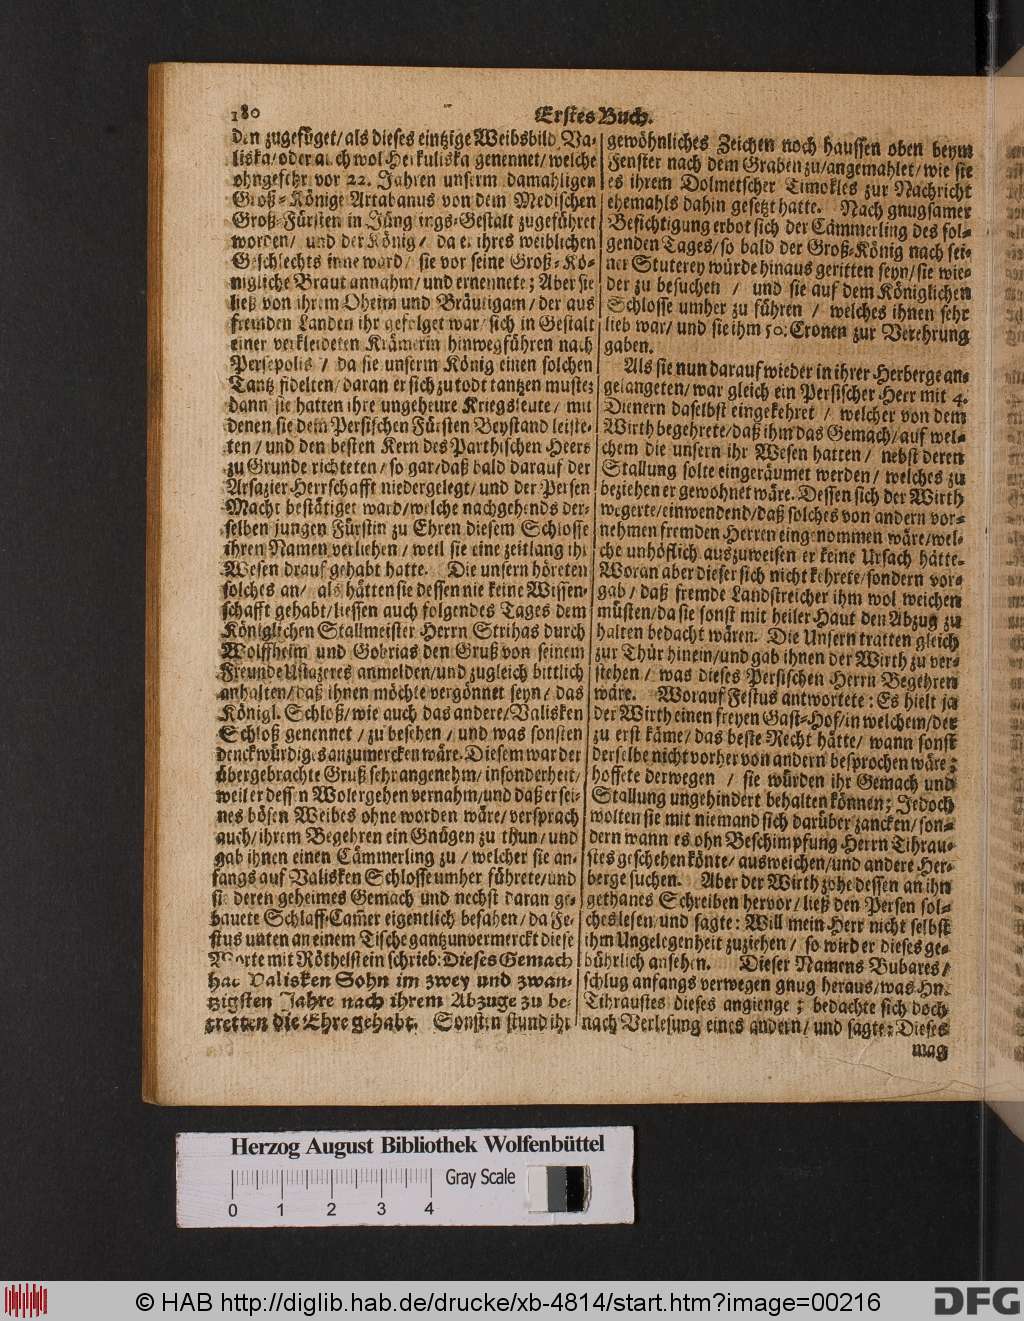 180
Erstes Buch.
den zugefüget/ als dieses eintzige Weibsbild Va-
liska/ oder auch wol Herkuliska genennet/ welche
ohngefehr vor 22. Jahren unserm damahligen
Groß-Könige Artabanus von dem Medischen
Groß-Fürsten in Jünglings-Gestalt zugeführet
worden/ und der König/ da er ihres weiblichen
Geschlechts inne ward/ sie vor seine Groß-Kö-
nigliche Braut annahm/ und ernennete; Aber sie
ließ von ihrem Oheim und Bräutigam/ der aus
fremden Landen ihr gefolget war/ sich in Gestalt
einer verkleideten Krämerin hinwegführen nach
Persepolis/ da sie unserm König einen solchen
Tantz fidelten/ daran er sich zu todt tantzen muste;
dann sie hatten ihre ungeheure Kriegsleute/ mit
denen sie dem Persischen Fürsten Beystand leiste-
ten/ und den besten Kern des Parthischen Heers
zu Grunde richteten/ so gar/ daß bald darauf der
Arsazier Herrschafft niedergelegt/ und der Persen
Macht bestätiget ward/ welche nachgehends der-
selben jungen Fürstin zu Ehren diesem Schlosse
ihren Namen verliehen/ weil sie eine zeitlang ihr
Wesen drauf gehabt hatte. Die unsern höreten
solches an/ als hätten sie dessen nie keine Wissen-
schafft gehabt/ liessen auch folgendes Tages dem
Königlichen Stallmeister Herrn Strihas durch
Wolffheim und Gobrias den Gruß von seinem
Freunde Ustazeres anmelden/ und zugleich bittlich
anhalten/ daß ihnen möchte vergönnet seyn/ das
Königl. Schloß/ wie auch das andere/ Valisken
Schloß genennet/ zu besehen/ und was sonsten
denckwürdiges anzumercken wäre. Diesem war der
übergebrachte Gruß sehr angenehm/ insonderheit/
weil er dessen Wolergehen vernahm/ und daß er sei-
nes bösen Weibes ohne worden wäre/ versprach
auch/ ihrem Begehren ein Gnügen zu thun/ und
gab ihnen einen Cämmerling zu/ welcher sie an-
fangs auf Valisken Schlosse umher führete/ und
sie deren geheimes Gemach und nechst daran ge-
bauete Schlaff-Cam̃er eigentlich besahen/ da Fe-
stus unten an einem Tische gantz unvermerckt diese
Worte mit Röthelstein schrieb: Dieses Gemach
hat Valisken Sohn im zwey und zwan-
tzigsten Jahre nach ihrem Abzuge zu be-
tretten die Ehre gehabt. Sonsten stund ihr
gewöhnliches Zeichen noch haussen oben beym
Fenster nach dem Graben zu/ angemahlet/ wie sie
es ihrem Dolmetscher Timokles zur Nachricht
ehemahls dahin gesetzt hatte. Nach gnugsamer
Besichtigung erbot sich der Cämmerling des fol-
genden Tages/ so bald der Groß-König nach sei-
ner Stuterey würde hinaus geritten seyn/ sie wie-
der zu besuchen/ und sie auf dem Königlichen
Schlosse umher zu führen/ welches ihnen sehr
lieb war/ und sie ihm 50. Cronen zur Verehrung
gaben.
Als sie nun darauf wieder in ihrer Herberge an-
gelangeten/ war gleich ein Persischer Herr mit 4.
Dienern daselbst eingekehret/ welcher von dem
Wirth begehrete/ daß ihm das Gemach/ auf wel-
chem die unsern ihr Wesen hatten/ nebst deren
Stallung solte eingeräumet werden/ welches zu
beziehen er gewohnet wäre. Dessen sich der Wirth
wegerte/ einwendend/ daß solches von andern vor-
nehmen fremden Herren eingenommen wäre/ wel-
che unhöflich auszuweisen er keine Ursach hätte.
Woran aber dieser sich nicht kehrete/ sondern vor-
gab/ daß fremde Landstreicher ihm wol weichen
müsten/ da sie sonst mit heiler Haut den Abzug zu
halten bedacht wären. Die Unsern tratten gleich
zur Thür hinein/ und gab ihnen der Wirth zu ver-
stehen/ was dieses Persischen Herrn Begehren
wäre. Worauf Festus antwortete: Es hielt ja
der Wirth einen freyen Gast-Hof/ in welchem/ der
zu erst käme/ das beste Recht hätte/ wann sonst
derselbe nicht vorher von andern besprochen wäre;
hoffete derwegen/ sie würden ihr Gemach und
Stallung ungehindert behalten können; Jedoch
wolten sie mit niemand sich darüber zancken/ son-
dern wann es ohn Beschimpfung Herrn Tihrau-
stes geschehen könte/ ausweichen/ und andere Her-
berge suchen. Aber der Wirth zohe dessen an ihn
gethanes Schreiben hervor/ ließ den Persen sol-
ches lesen/ und sagte: Will mein Herr nicht selbst
ihm Ungelegenheit zuziehen/ so wird er dieses ge-
bührlich ansehen. Dieser Namens Bubares/
schlug anfangs verwegen gnug heraus/ was Hn.
Tihraustes dieses angienge; bedachte sich doch
nach Verlesung eines andern/ und sagte: Dieses
mag
Herzog August Bibliothek Wolfenbüttel
Gray Scale
0 1 2 3 4
© HAB http://diglib.hab.de/drucke/xb-4814/start.htm?image=00216
DFG